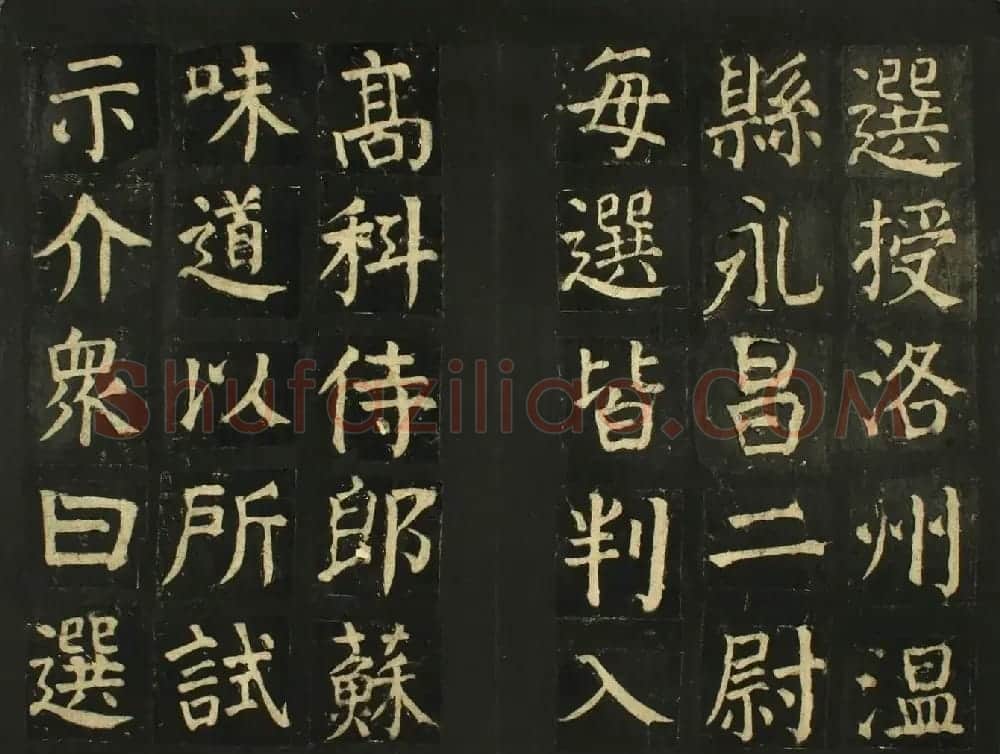 選授洛州溫
縣永昌二尉
每選皆判入
高科侍郎蘇
味道以所試
示介衆曰選
Shufaziliao.COM